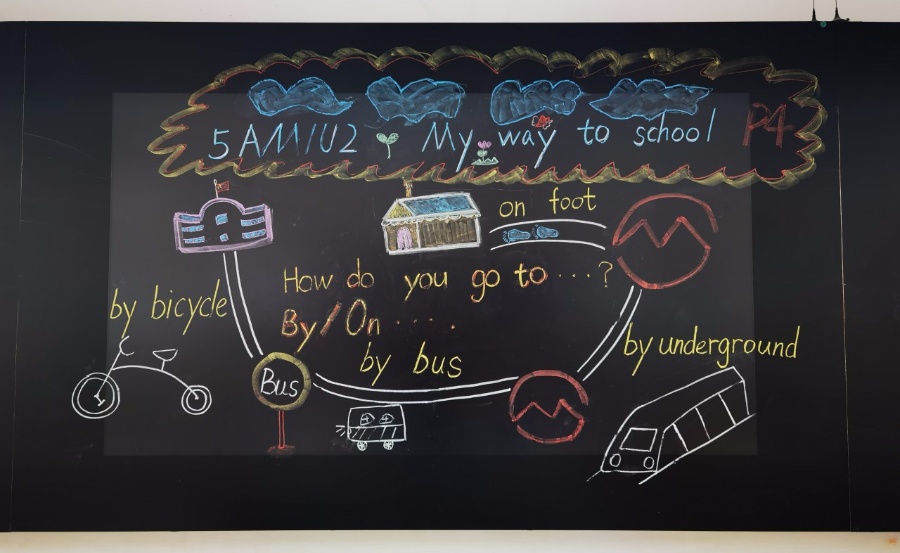 5AM1U2 My way to school P4
on foot
How do you go to ····?
By/On ····.
by bicycle
by bus
by underground
Bus